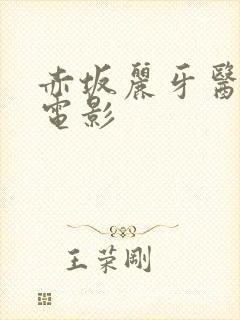 赤坂麗牙醫
電影
王荣剛